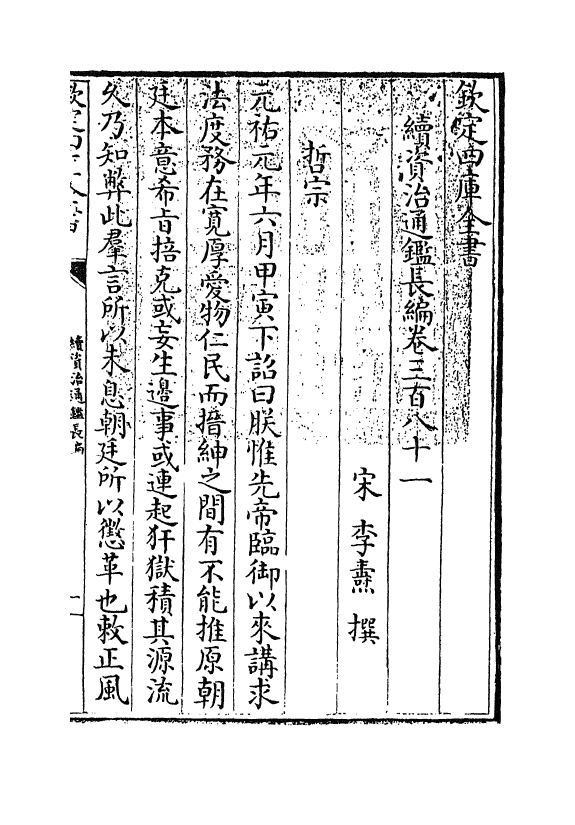 欽定四庫全書
續資治通鑑長編卷三百八十一
宋 李燾 撰
哲宗
元祐元年六月甲寅下詔曰朕惟先帝臨御以來講求
法度務在寛厚愛物仁民而搢紳之間有不能推原朝
廷本意希㫖掊克或妄生邉事或連起犴獄積其源流
久乃知弊此羣言所以未息朝廷所以懲革也敕正風
續資治通鑑長編
一